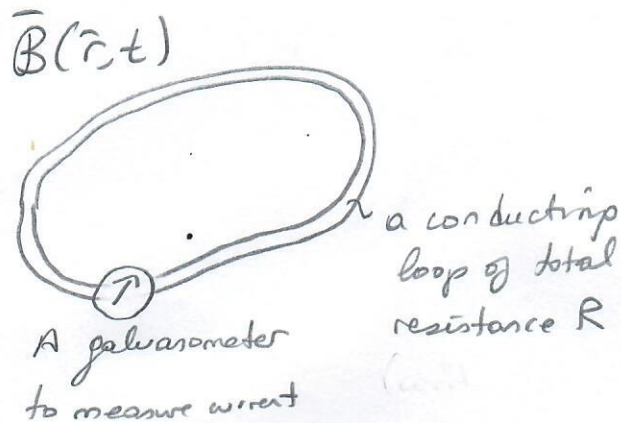 B̄(r̄,t)
a conducting
loop of total
resistance R
A galvanometer
to measure current